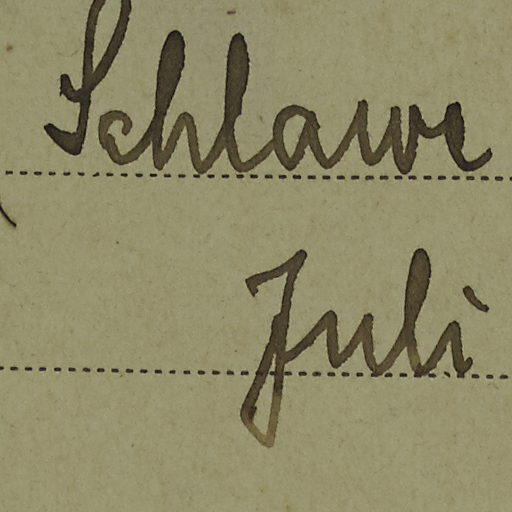 Schlawe
Juli